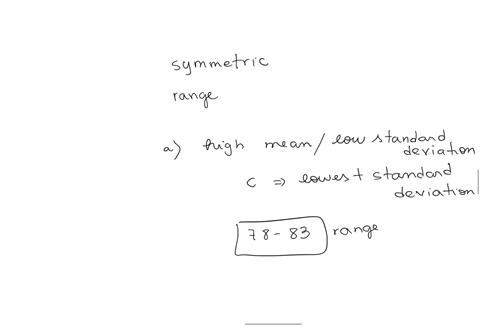 symmetric
range
a) high mean / low standard
deviation
c ⇒ lowest standard
deviation
78-83 range